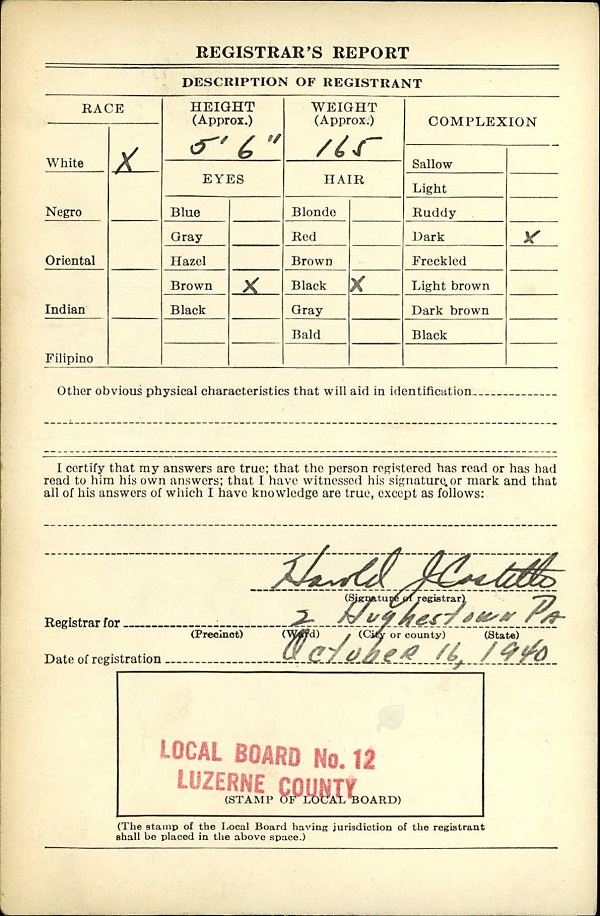 REGISTRAR'S REPORT
DESCRIPTION OF REGISTRANT
RACE
HEIGHT
(Approx.)
WEIGHT
(Approx.)
COMPLEXION
5' 6"
165
White X
EYES
HAIR
Sallow
Light
Negro
Blue
Blonde
Ruddy
Gray
Red
Dark X
Oriental
Hazel
Brown
Freckled
Brown X
Black X
Light brown
Indian
Black
Gray
Dark brown
Bald
Black
Filipino
Other obvious physical characteristics that will aid in identification
I certify that my answers are true; that the person registered has read or has had
read to him his own answers; that I have witnessed his signature or mark and that
all of his answers of which I have knowledge are true, except as follows:
Harold J Costello
(Signature of registrar)
Registrar for 2 Hughestown Pa
(Precinct) (Ward) (City or county) (State)
Date of registration October 16, 1940
LOCAL BOARD No. 12
LUZERNE COUNTY
(STAMP OF LOCAL BOARD)
(The stamp of the Local Board having jurisdiction of the registrant
shall be placed in the above space.)